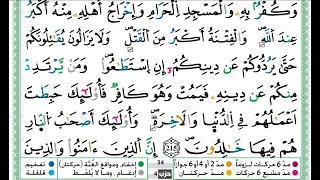 وَكُفْرٌۢ بِهِۦ وَٱلْمَسْجِدِ ٱلْحَرَامِ وَإِخْرَاجُ أَهْلِهِۦ مِنْهُ أَكْبَرُ
عِندَ ٱللَّهِۚ وَٱلْفِتْنَةُ أَكْبَرُ مِنَ ٱلْقَتْلِۗ وَلَا يَزَالُونَ يُقَٰتِلُونَكُمْ
حَتَّىٰ يَرُدُّوكُمْ عَن دِينِكُمْ إِنِ ٱسْتَطَٰعُوا۟ۚ وَمَن يَرْتَدِدْ
مِنكُمْ عَن دِينِهِۦ فَيَمُتْ وَهُوَ كَافِرٌ فَأُو۟لَٰٓئِكَ حَبِطَتْ
أَعْمَٰلُهُمْ فِى ٱلدُّنْيَا وَٱلْءَاخِرَةِۖ وَأُو۟لَٰٓئِكَ أَصْحَٰبُ ٱلنَّارِۖ
هُمْ فِيهَا خَٰلِدُونَ 215 إِنَّ ٱلَّذِينَ ءَامَنُوا۟ وَٱلَّذِينَ
مدّ 6 حركات لزوماً مدّ 2 أو 4 أو 6 جوازاً
مدّ مشبع 6 حركات مدّ حركتان
34
حزب
إخفاء، ومواقع الغُنَّة (حركتان)
إدغام، وما لا يُلفَظ
تفخيم
قلقلة